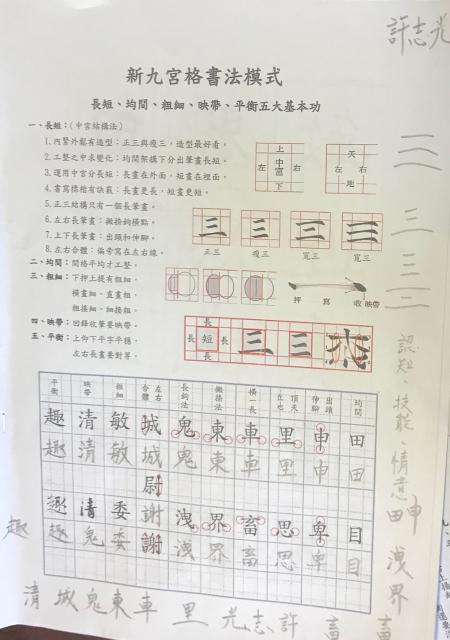 許志光
新九宮格書法模式
長短、均間、粗細、映帶、平衡五大基本功
一、長短:(中宮結構法)
1.內緊外鬆有造型:正三與瘦三,造型最好看。
2.工整之中求變化:均間架構下分出筆畫長短。
3.運用中宮分長短:長畫在外面,短畫在裡面。
4.書寫標楷有訣竅:長畫更長,短畫更短。
5.正三結構只有一個長筆畫。
6.左右長筆畫:撇捺鈎橫點。
7.上下長筆畫:出頭和伸腳。
8.左右合體:偏旁寫在左右線。
上
左 中宮 右
下
天
左 右
地
三 三 三 三
正三 瘦三 寬三 寬三
二、均間:間格平均才工整。
三、粗細:下押上提有粗細。
橫畫細、直畫粗,
粗捺細、細捺粗。
押 寫 收 映帶
四、映帶:回鋒收筆要映帶。
五、平衡:上仰下平字平穩,
左右長畫要對等。
長
長 短 長
長
三 三
三 三 三
認知、技能、情意
平衡 映帶 粗細 左右合體 長鈎法 撇捺法 橫一長 出頭伸腳 均間
趣 清 敏 城 鬼 東 車 里 申 田
趣 清 敏 城 鬼 東 車 里 申 田
尉
趣 清 委 謝 洩 界 畜 思 卑 目
趣 鬼 委 謝 洩 界 畜 思 卑 目
趣
申 田 洩 界
清 城 鬼 東 車 里 光 志 許 畜 畜